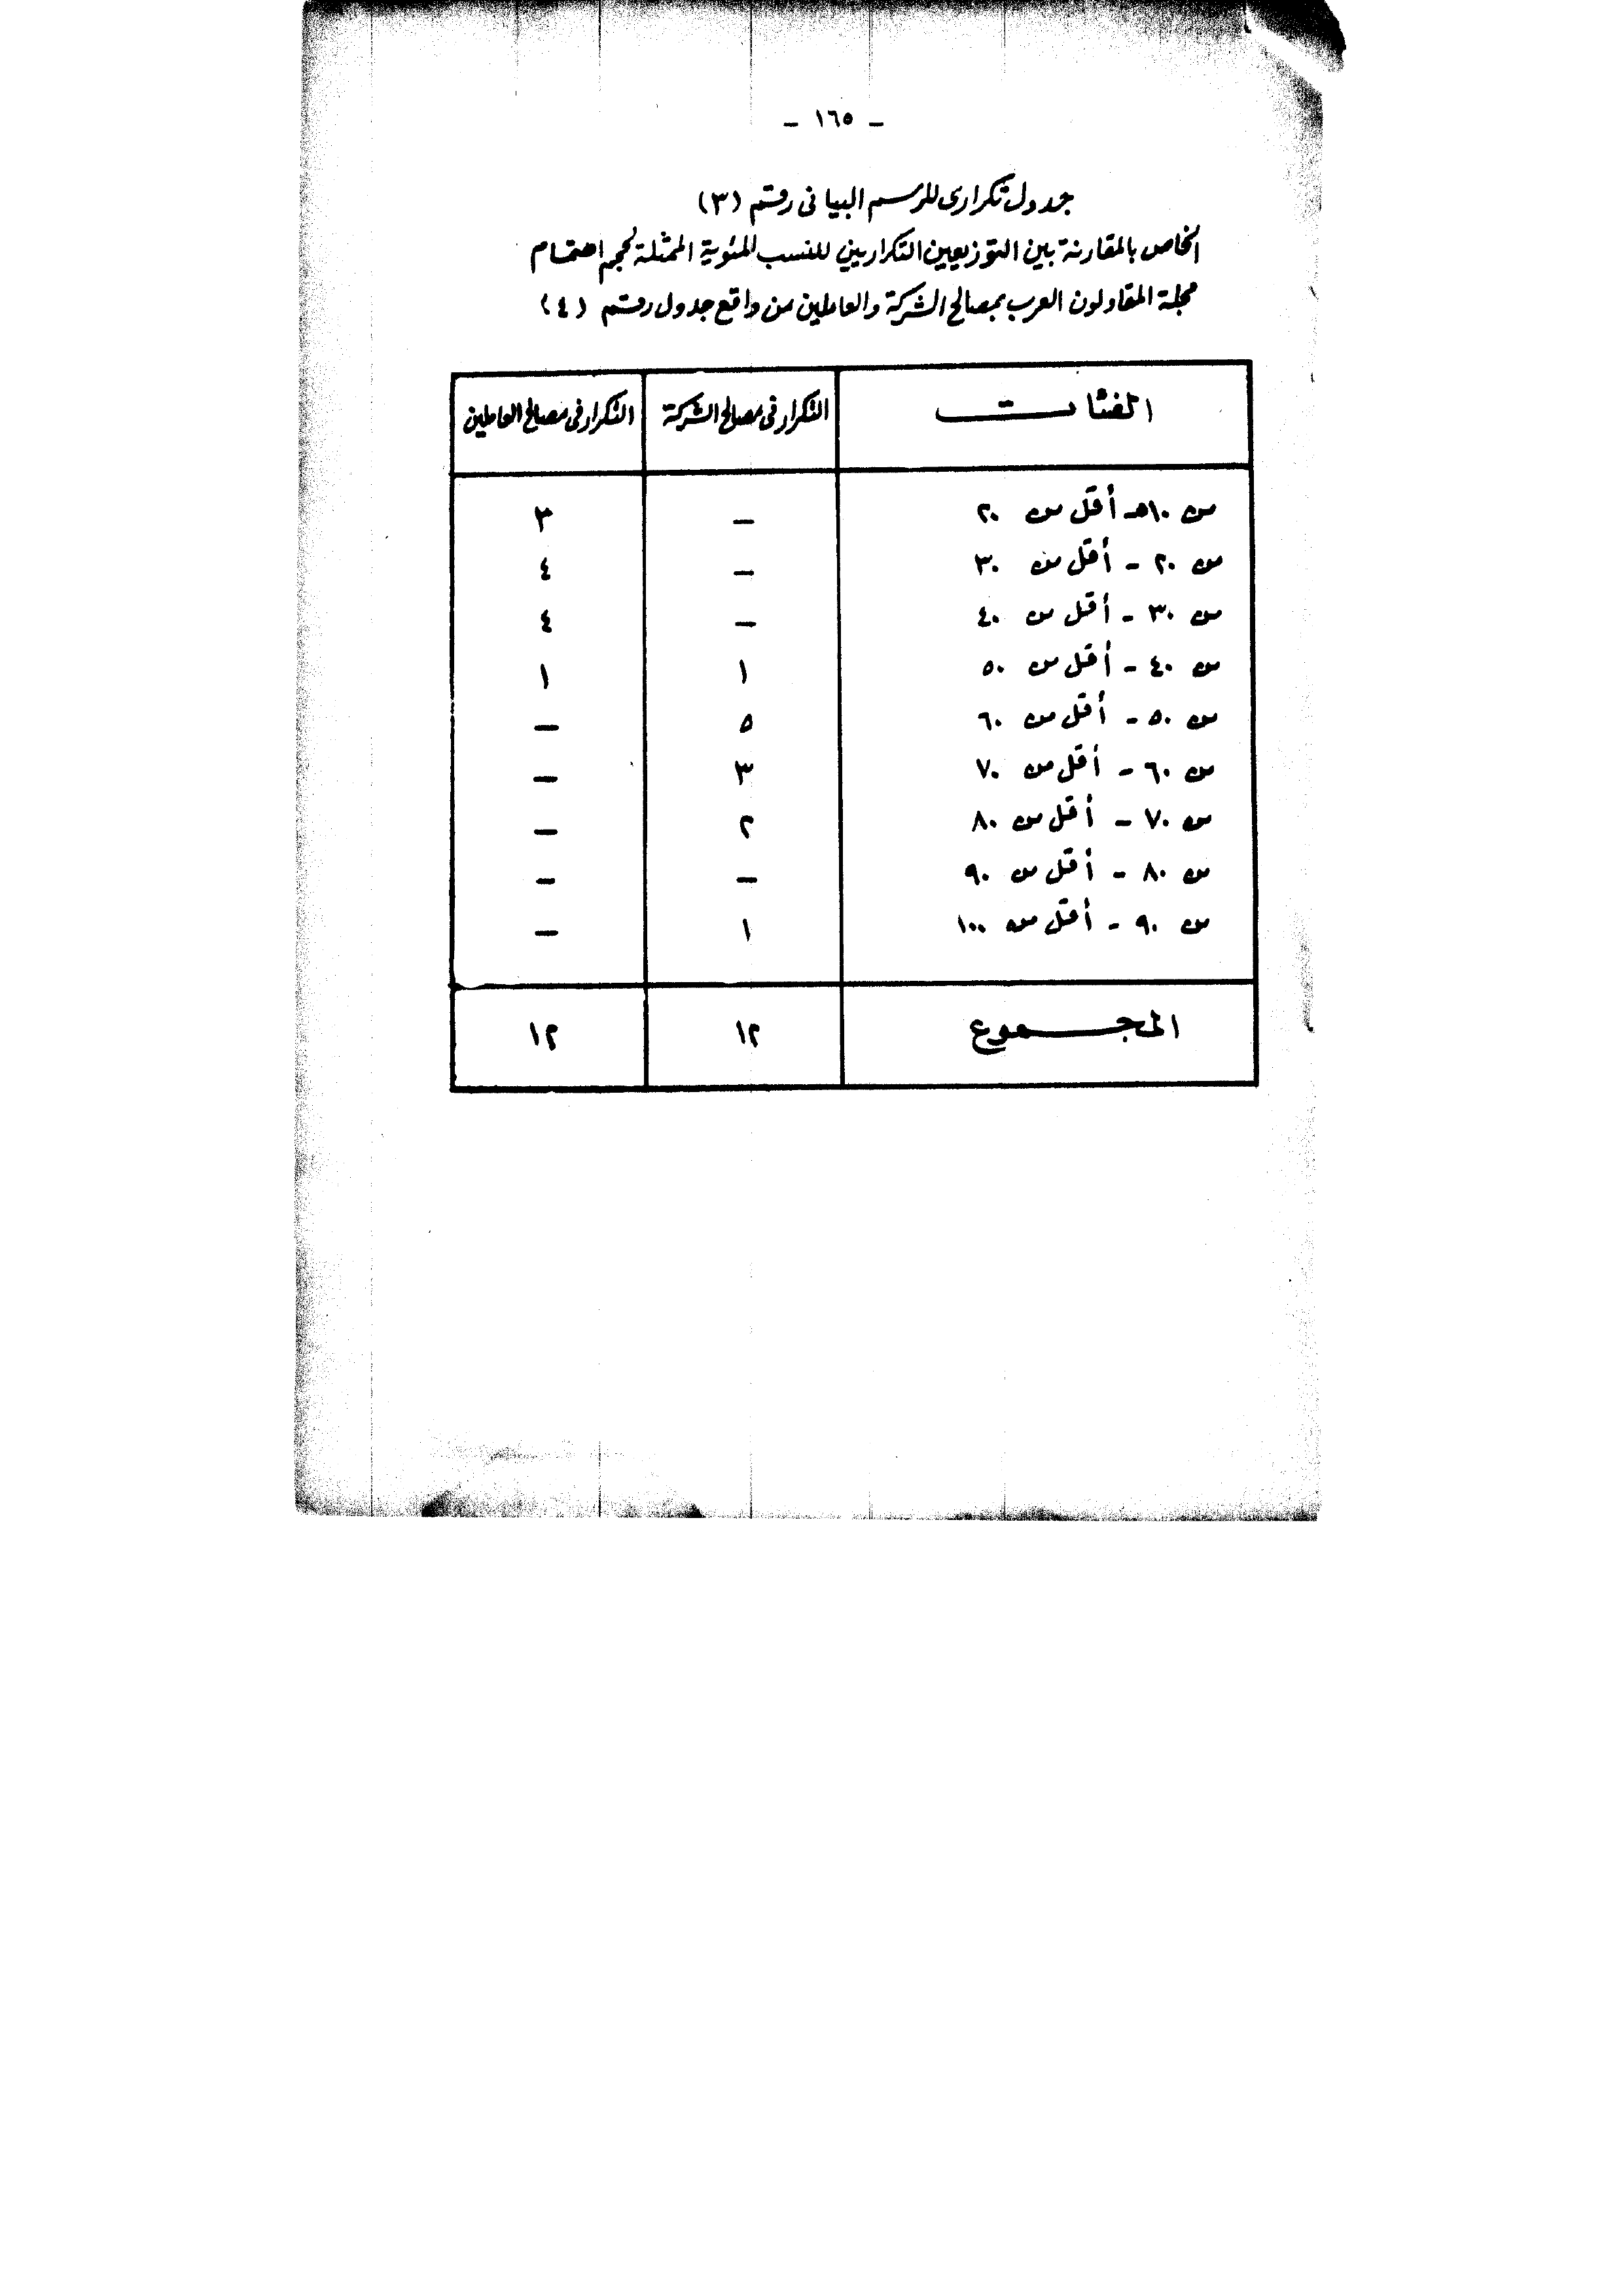 - ١٦٥ -
جدول تكرارى للرسم البيانى رقم (٣)
الخاص بالمقارنة بين التوزيعين التكراريين للنسب المئوية الممثلة لحجم اهتمام
مجلة المقاولون العرب بمصالح الشركة والعاملين من واقع جدول رقم (٤)
الفئات التكرار فى مصالح الشركة التكرار فى مصالح العاملين
من ١٠ - أقل من ٢٠ - ٣
من ٢٠ - أقل من ٣٠ - ٤
من ٣٠ - أقل من ٤٠ - ٤
من ٤٠ - أقل من ٥٠ ١ ١
من ٥٠ - أقل من ٦٠ ٥ -
من ٦٠ - أقل من ٧٠ ٣ -
من ٧٠ - أقل من ٨٠ ٢ -
من ٨٠ - أقل من ٩٠ - -
من ٩٠ - أقل من ١٠٠ ١ -
المجموع ١٢ ١٢